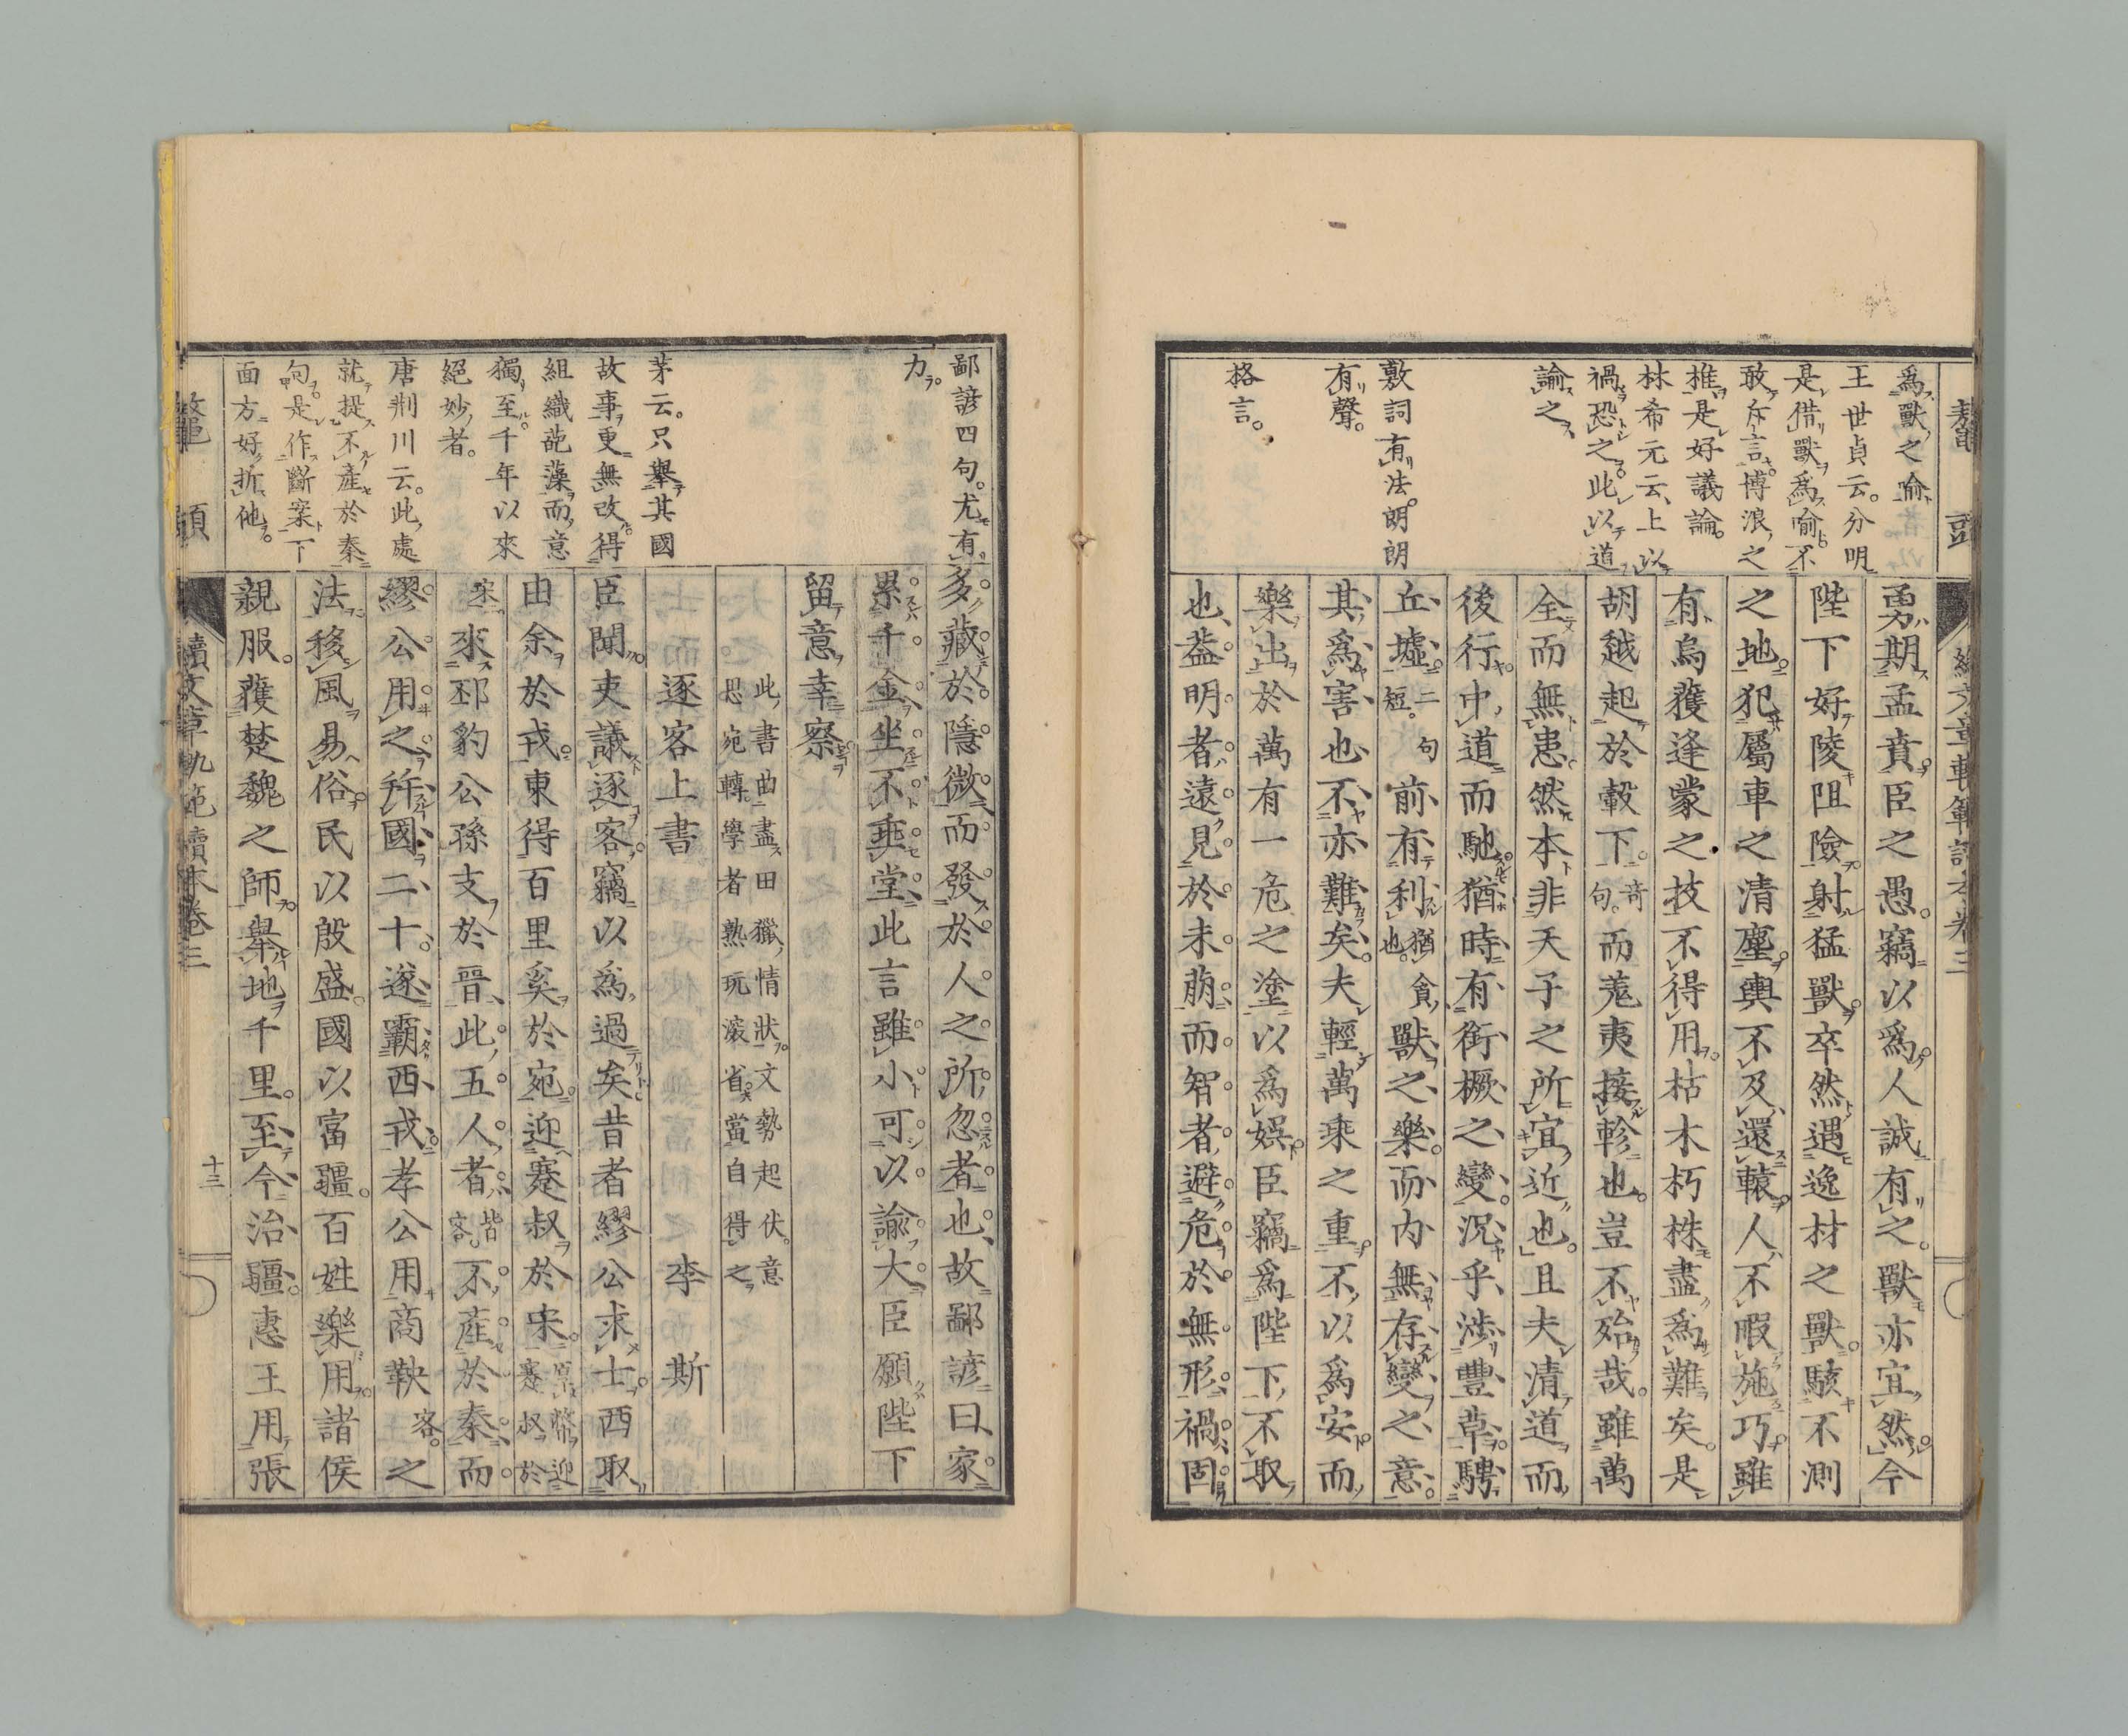 鼇頭
續文章軌範讀本卷三
爲獸之喻
王世貞云。分明
是借獸爲喻不
敢斥言博浪之
椎是好議論。
林希元云、上以
禍恐之。此以道
諭之
敷詞有法。朗朗
有聲。
格言。
勇期孟賁臣之愚。竊以爲。人誠有之。獸亦宜然今
陛下好陵阻險射猛獸。卒然遇逸材之獸。駭不測
之地。犯屬車之清塵。輿不及還轅。人不暇施巧。雖
有烏獲逢蒙之技不得用。枯木朽株盡爲難矣。是
胡越起於轂下。奇句。而羗夷接軫也。豈不殆哉。雖萬
全而無患。然本非天子之所宜近也。且夫清道而
後行中道而馳。猶時有銜橛之變。況乎涉豐草騁
丘墟。二句短。前有利猶貪也。獸之樂。而内無存變之意。
其爲害也不亦難矣。夫輕萬乘之重。不以爲安而
樂出於萬有一危之塗以爲娯臣竊爲陛下不取
也、葢明者。遠見於未萠。而智者避危於無形。禍固
鄙諺四句。尤有
力。
茅云。只舉其國
故事更無改得
組織葩藻而意
獨至。千年以來
絕妙者。
唐荆川云。此處
就提不產於秦
句。是作斷案下
面方好折他。
多藏於隱微。而發於人之所忽者也、故鄙諺曰、家
累千金。坐不垂堂。此言雖小可以諭大。臣願陛下
留意幸察
此書曲盡田獵情狀文勢起伏。意
思宛轉。學者熟玩滾省當自得之
逐客上書 李斯
臣聞吏議逐客。竊以爲過矣昔者繆公求士。西取
由余於戎。東得百里奚於宛。迎蹇叔於宋。原幣迎蹇叔於
宋來邳豹公孫支於晉、此五人者皆客。不產於秦。而
繆公用之。幷國二十、遂霸西戎。孝公用商鞅客。之
法移風易俗。民以殷盛。國以富疆。百姓樂用。諸侯
親服。獲楚魏之師。舉地千里。至今治疆。惠王用張
鼇頭
續文章軌範讀本卷三
十三